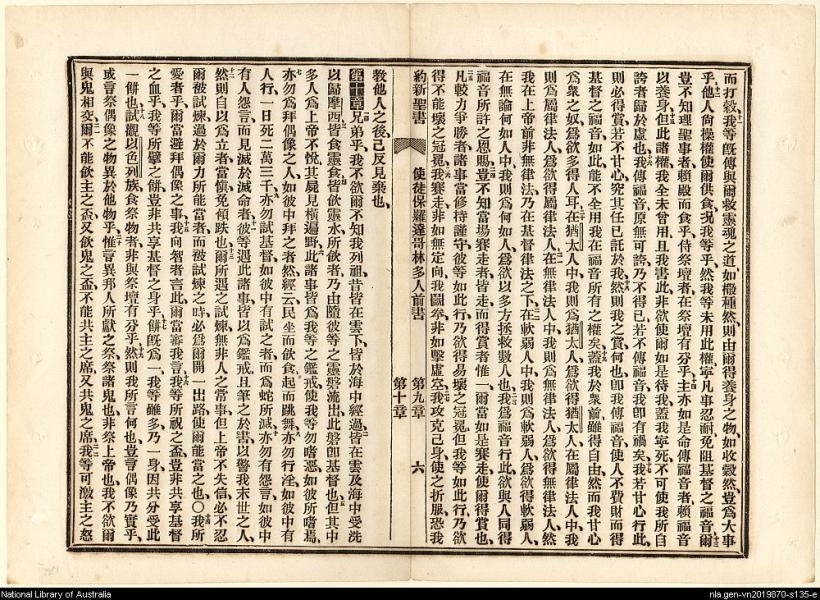 而打穀我等既傳與爾救靈魂之道如撒種然則由爾得養身之物如收穀然豈爲大事
乎他人尚操權使爾供食況我等乎然我等未用此權寧凡事忍耐免阻基督之福音爾
豈不知理聖事者賴殿而食乎侍祭壇者在祭壇有分乎主亦如是命傳福音者賴福音
以養身但此諸權我全未曾用且我書此非欲使爾如是待我蓋我寧死不可使我所自
誇者歸於虛也我傳福音原無可誇乃不得已若不傳福音我即有禍矣我若甘心行此、
則必得賞若不甘心究其任已託於我然則我之賞何也即我傳福音使人不費財而得
基督之福音如此能不全用我在福音所有之權矣蓋我於衆前雖得自由然而我甘心
爲衆之奴爲欲多得人耳在猶太人中我則爲猶太人爲欲得猶太人在屬律法人中我
則爲屬律法人爲欲得屬律法人在無律法人中我則爲無律法人爲欲得無律法人然
我在上帝前非無律法乃在基督律法之下在軟弱人中我則爲軟弱人爲欲得軟弱人、
在無論何如人中我則爲何如人爲欲以多方拯救數人也我爲福音行此欲與人同得
福音所許之恩賜豈不知當場賽走者皆走而得賞者惟一爾當如是賽走使爾得賞也、
凡較力爭勝者諸事當修持謹守彼等如此行乃欲得易壞之冠冕但我等如此行乃欲
得不能壞之冠冕我賽走非如無定向我鬬拳非如擊虛空我攻克己身使之折服恐我
約新聖書
使徒保羅達哥林多人前書
第九章
第十章
六
教他人之後己反見棄也、
第十章兄弟乎我不欲爾不知我列祖昔皆在雲下皆於海中經過皆在雲及海中受洗
以歸摩西皆食靈食皆飲靈水所飲者乃由隨彼等之靈磐流出此磐即基督也但其中
多人爲上帝不悅其屍見橫遍野此諸事皆爲我等之鑑戒使我等勿嗜惡如彼所嗜焉、
亦勿爲拜偶像之人如彼中拜之者然經云民坐而飲食起而跳舞亦勿行淫如彼中有
人行一日死二萬三千亦勿試基督如彼中有試之者而爲蛇所滅亦勿有怨言如彼中
有人怨言而見滅於滅命者彼等遇此諸事皆以爲鑑戒且筆之於書以警我末世之人、
然則自以爲立者當慎免傾跌也爾所遇之試煉無非人之常事但上帝不失信必不忍
爾被試煉過於爾力所能當者而被試煉之時必爲爾開一出路使爾能當之也〇我所
愛者乎爾當避拜偶像之事我向智者言此爾當審我言我等所祝之盃豈非共享基督
之血乎我等所擘之餅豈非共享基督之身乎餅既爲一我等雖多乃一身因共分受此
一餅也試觀以色列族食祭物者非與祭壇有分乎然則我所言何也豈言偶像乃實乎、
或言祭偶像之物異於他物乎惟言異邦人所獻之祭祭諸鬼也非祭上帝也我不欲爾
與鬼相交爾不能飲主之盃又飲鬼之盃不能共主之席又共鬼之席我等可激主之怒
National Library of Australia
nla.gen-vn2019870-s135-e